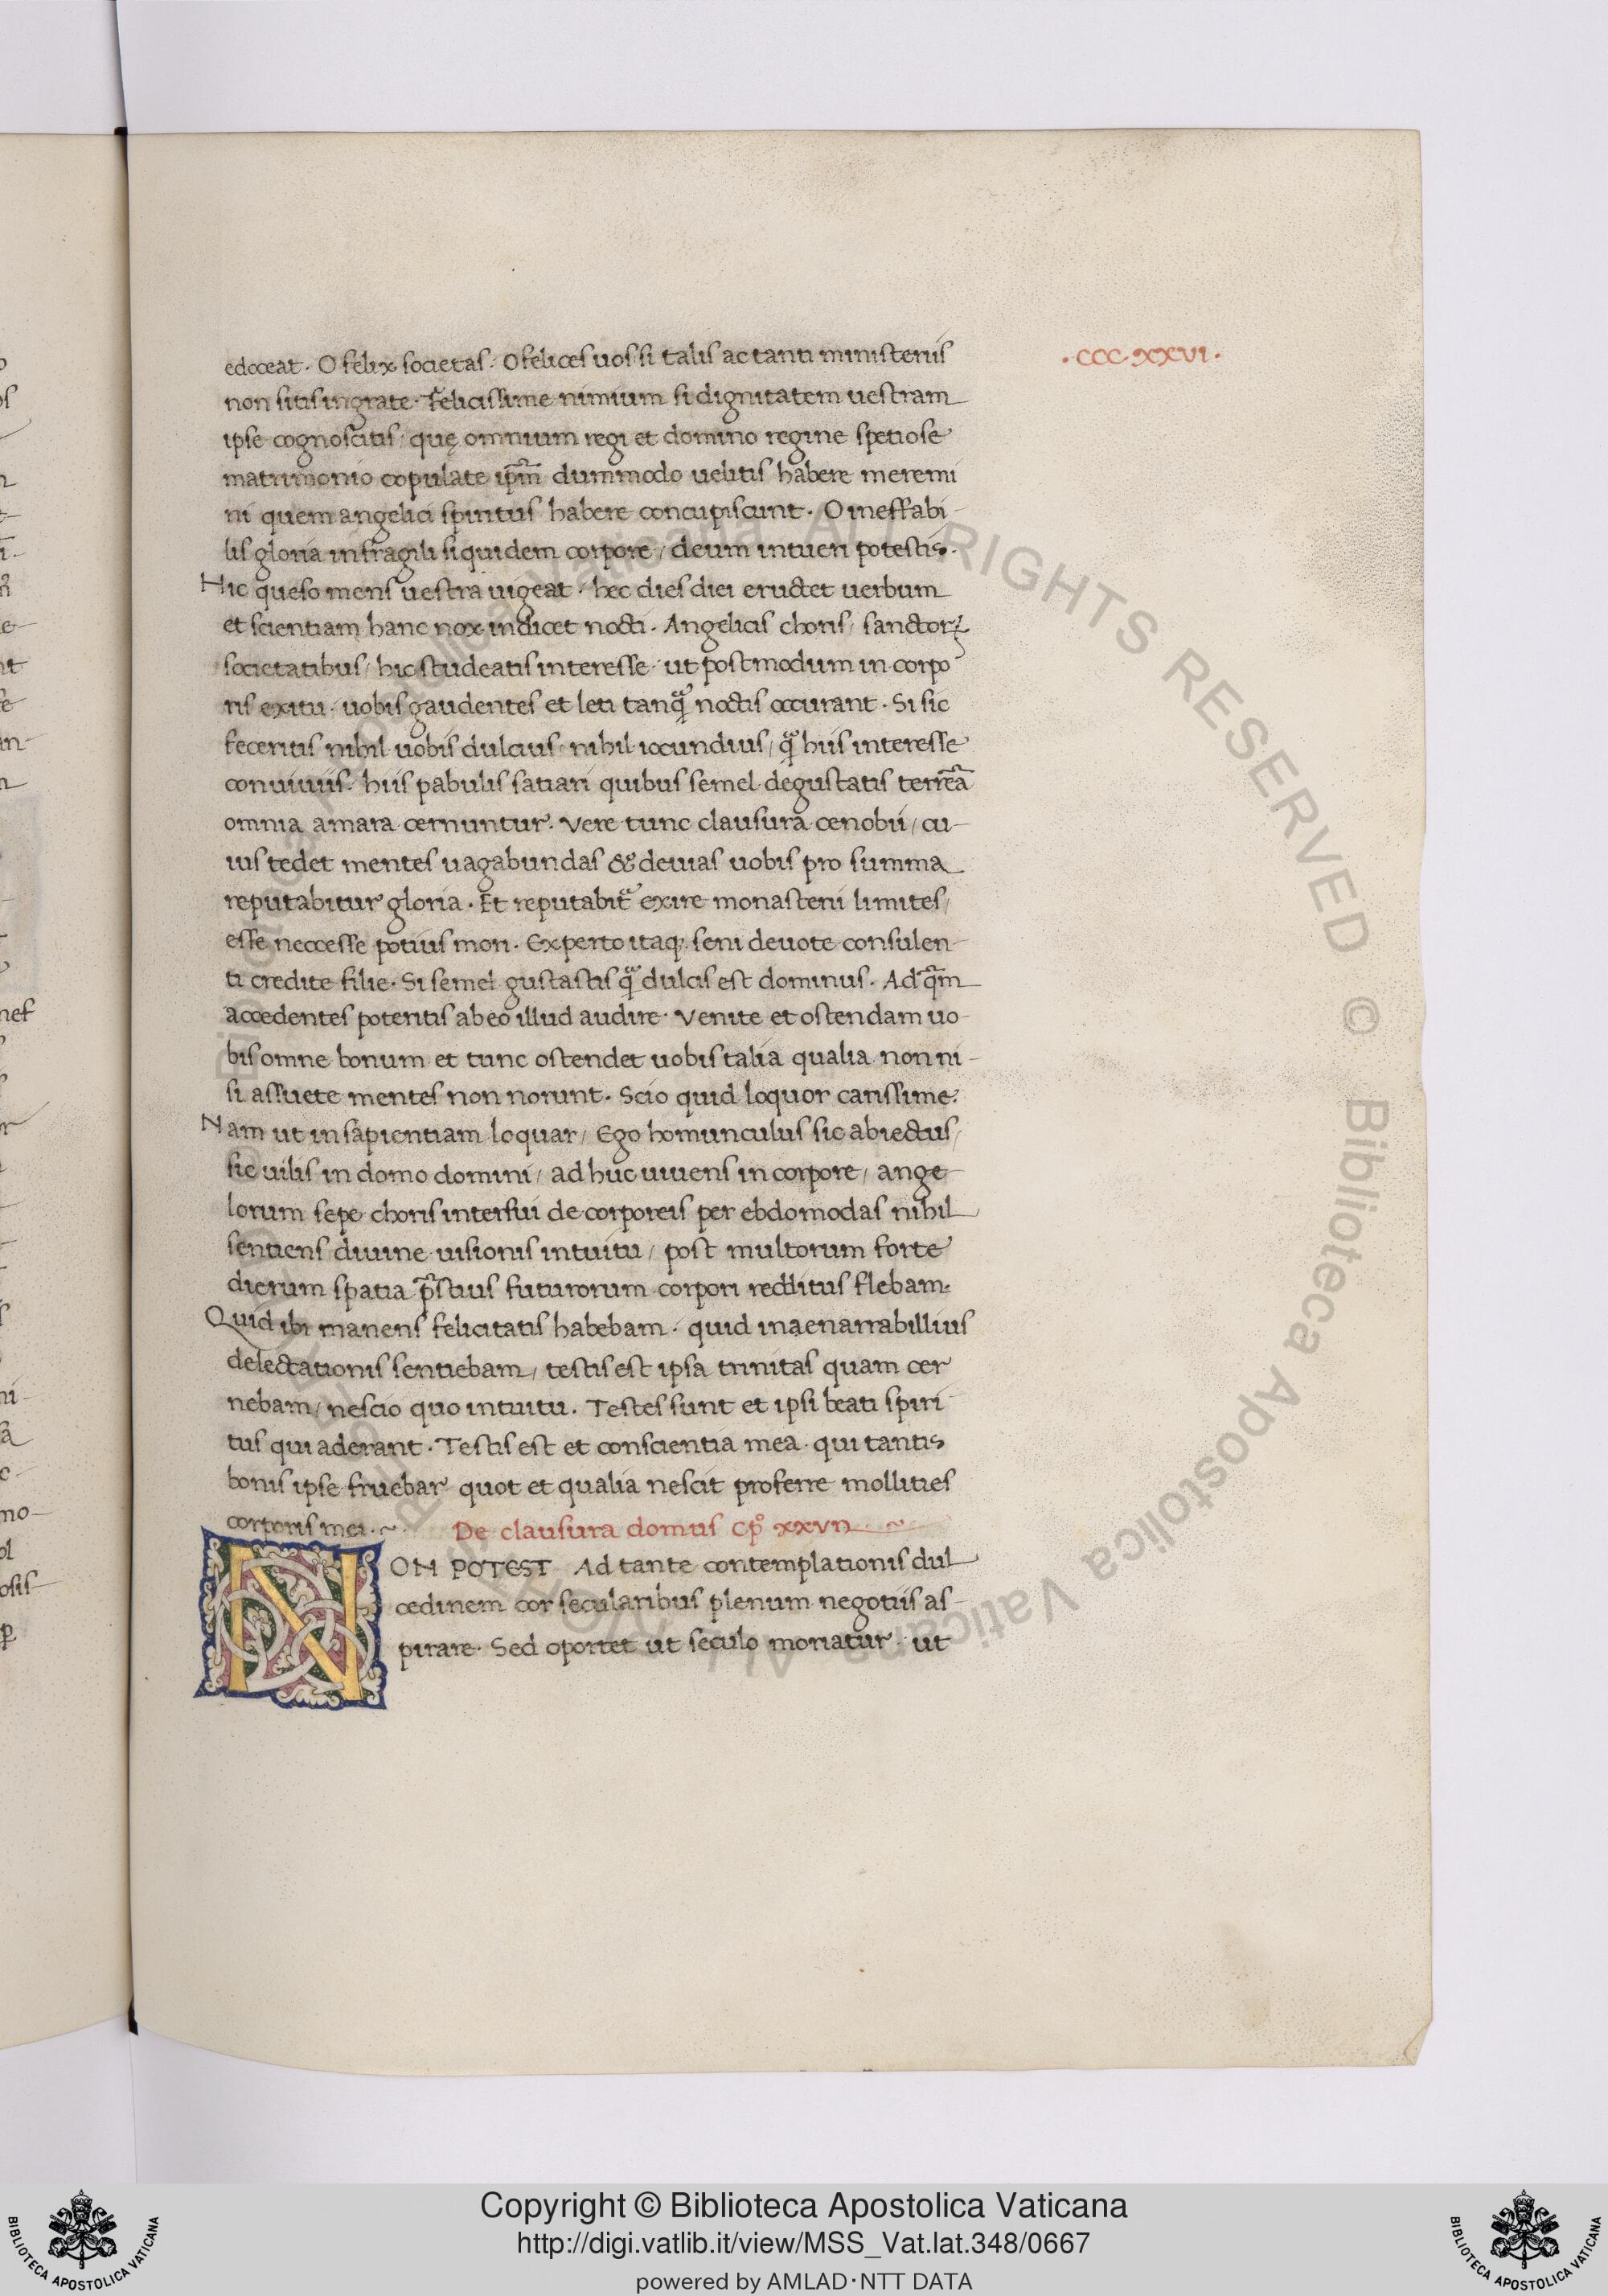 edoceat · O felix societas · O felices uos si talis ac tanti ministeriis
· CCC · XXVI ·
non sitis ingrate · Felicissime nimium si dignitatem uestram
ipse cognoscitis / quę omnium regi et domino regine spetiose
matrimonio copulate ip̄m̄ dummodo uelitis habere meremi
ni quem angelici spiritus habere concupiscunt · O ineffabi-
lis gloria in fragili siquidem corpore / deum intueri potestis ·
Hic queso mens uestra uigeat · hec dies diei eructet uerbum
et scientiam hanc nox indicet nocti · Angelicis choris / sanctorꝝ
societatibus / hic studeatis interesse · ut postmodum in corpo
ris exitu · uobis gaudentes et leti tanqͣ̃ notis occurant · Si sic
feceritis nihil uobis dulcius / nihil iocundius / qͣ̃ hiis interesse
conuiuiis · hiis pabulis satiari quibus semel degustatis terrēa
omnia amara cernuntur · Vere tunc clausura cenobii / cu-
ius tedet mentes uagabundas & deuias uobis pro summa
reputabitur gloria · Et reputabit᷑ exire monasterii limites /
esse neccesse potius mori · Experto itaqꝫ seni deuote consulen-
ti credite filie · Si semel gustastis qͣ̃ dulcis est dominus · Ad qͣ̃m
accedentes poteritis ab eo illud audire · Venite et ostendam uo-
bis omne bonum et tunc ostendet uobis talia qualia non ni-
si assuete mentes non norunt · Scio quid loquor carissime ·
Nam ut insapientiam loquar / Ego homunculus sic abiectus /
sic uilis in domo domini / ad huc uiuens in corpore / ange
lorum sepe choris interfui de corporeis per ebdomodas nihil
sentiens diuine uisionis intuitu / post multorum forte
dierum spatia p̄stius futurorum corpori redditus flebam ·
Quid ibi manens felicitatis habebam · quid inaenarrabillius
delectationis sentiebam / testis est ipsa trinitas quam cer
nebam / nescio quo intuitu · Testes sunt et ipsi beati spiri
tus qui aderant · Testis est et conscientia mea · qui tantis
bonis ipse fruebar quot et qualia nescit proferre mollities
corporis mei · ~ De clausura domus Cp̊ XXVII · ~
NON POTEST Ad tante contemplationis dul
cedinem cor secularibus plenum negotiis as-
pirare · Sed oportet ut seculo moriatur · ut
Copyright © Biblioteca Apostolica Vaticana
http://digi.vatlib.it/view/MSS_Vat.lat.348/0667
powered by AMLAD·NTT DATA
BIBLIOTECA APOSTOLICA VATICANA
BIBLIOTECA APOSTOLICA VATICANA